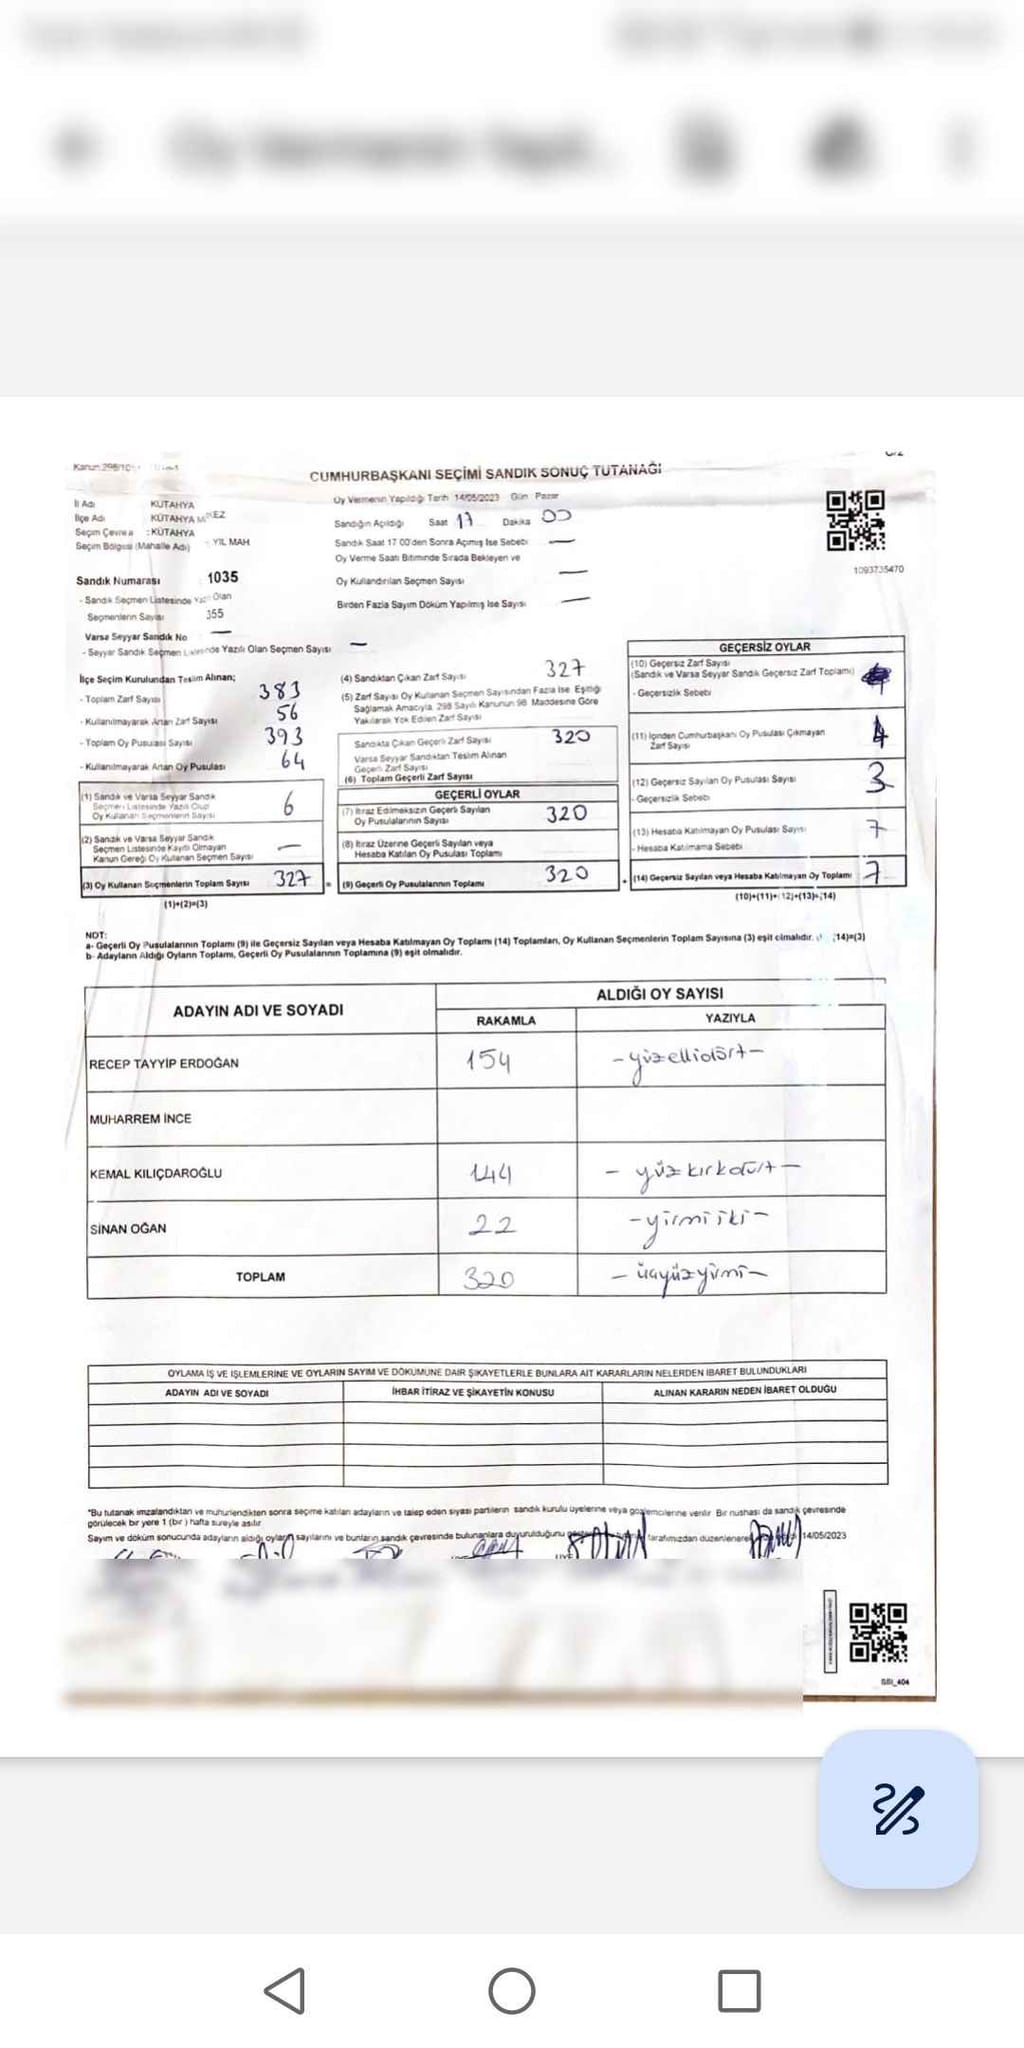 CUMHURBAŞKANI SEÇİMİ SANDIK SONUÇ TUTANAĞI
İl Adı KÜTAHYA
İlçe Adı KÜTAHYA
Seçim Çevresi : KÜTAHYA
Seçim Bölgesi (Mahalle Adı) YIL MAH
Oy Vermenin Yapıldığı Tarih 14/05/2023 Gün Pazar
Sandığın Açıldığı Saat 17 Dakika 00
Sandık Saat 17 00'den Sonra Açılmış İse Sebebi —
Oy Verme Saati Bitiminde Sırada Bekleyen ve
Oy Kullandırılan Seçmen Sayısı —
Birden Fazla Sayım Döküm Yapılmış İse Sayısı —
1093735470
Sandık Numarası : 1035
- Sandık Seçmen Listesinde Olan
Seçmenlerin Sayısı 355
Varsa Seyyar Sandık No —
- Seyyar Sandık Seçmen Listesinde Yazılı Olan Seçmen Sayısı —
İlçe Seçim Kurulundan Teslim Alınan;
- Toplam Zarf Sayısı 383
- Kullanılmayarak Artan Zarf Sayısı 56
- Toplam Oy Pusulası Sayısı 393
- Kullanılmayarak Artan Oy Pusulası 64
(1) Sandık ve Varsa Seyyar Sandık
Seçmen Listesinde Yazılı Olup
Oy Kullanan Seçmenlerin Sayısı 6
(2) Sandık ve Varsa Seyyar Sandık
Seçmen Listesinde Kayıtlı Olmayan
Kanun Gereği Oy Kullanan Seçmen Sayısı —
(3) Oy Kullanan Seçmenlerin Toplam Sayısı 327
(1)+(2)=(3)
(4) Sandıktan Çıkan Zarf Sayısı 327
(5) Zarf Sayısı Oy Kullanan Seçmen Sayısından Fazla İse Eşitliği
Sağlamak Amacıyla, 298 Sayılı Kanunun 98. Maddesine Göre
Yakılarak Yok Edilen Zarf Sayısı
Sandıkta Çıkan Geçerli Zarf Sayısı 320
Varsa Seyyar Sandıktan Teslim Alınan
Geçerli Zarf Sayısı
(6) Toplam Geçerli Zarf Sayısı
GEÇERLİ OYLAR
(7) İtiraz Edilmeksizin Geçerli Sayılan
Oy Pusulalarının Sayısı 320
(8) İtiraz Üzerine Geçerli Sayılan veya
Hesaba Katılan Oy Pusulası Toplamı
(9) Geçerli Oy Pusulalarının Toplamı 320
GEÇERSİZ OYLAR
(10) Geçersiz Zarf Sayısı
(Sandık ve Varsa Seyyar Sandık Geçersiz Zarf Toplamı)
- Geçersizlik Sebebi
(11) İçinden Cumhurbaşkanı Oy Pusulası Çıkmayan
Zarf Sayısı 4
(12) Geçersiz Sayılan Oy Pusulası Sayısı 3
- Geçersizlik Sebebi
(13) Hesaba Katılmayan Oy Pusulası Sayısı 7
- Hesaba Katılmama Sebebi
(14) Geçersiz Sayılan veya Hesaba Katılmayan Oy Toplamı 7
(10)+(11)+(12)+(13)=(14)
NOT:
a- Geçerli Oy Pusulalarının Toplamı (9) ile Geçersiz Sayılan veya Hesaba Katılmayan Oy Toplamı (14) Toplamları, Oy Kullanan Seçmenlerin Toplam Sayısına (3) eşit olmalıdır. (14)=(3)
b- Adayların Aldığı Oyların Toplamı, Geçerli Oy Pusulalarının Toplamına (9) eşit olmalıdır.
ADAYIN ADI VE SOYADI
ALDIĞI OY SAYISI
RAKAMLA YAZIYLA
RECEP TAYYİP ERDOĞAN 154 -yüzellidört-
MUHARREM İNCE
KEMAL KILIÇDAROĞLU 144 - yüzkırkdört-
SİNAN OĞAN 22 -yirmiiki-
TOPLAM 320 - üçyüzyirmi-
OYLAMA İŞ VE İŞLEMLERİNE VE OYLARIN SAYIM VE DÖKÜMÜNE DAİR ŞİKAYETLERLE BUNLARA AİT KARARLARIN NELERDEN İBARET BULUNDUKLARI
ADAYIN ADI VE SOYADI İHBAR İTİRAZ VE ŞİKAYETİN KONUSU ALINAN KARARIN NEDEN İBARET OLDUĞU
*Bu tutanak imzalandıktan ve mühürlendikten sonra seçime katılan adayların ve talep eden siyasi partilerin sandık kurulu üyelerine veya gözlemcilerine verilir. Bir nüshası da sandık çevresinde
görülecek bir yere 1 (bir) hafta süreyle asılır
Sayım ve döküm sonucunda adayların aldığı oyların sayılarını ve bunların sandık çevresinde bulunanlara duyurulduğunu tarafımızdan düzenlenerek 14/05/2023